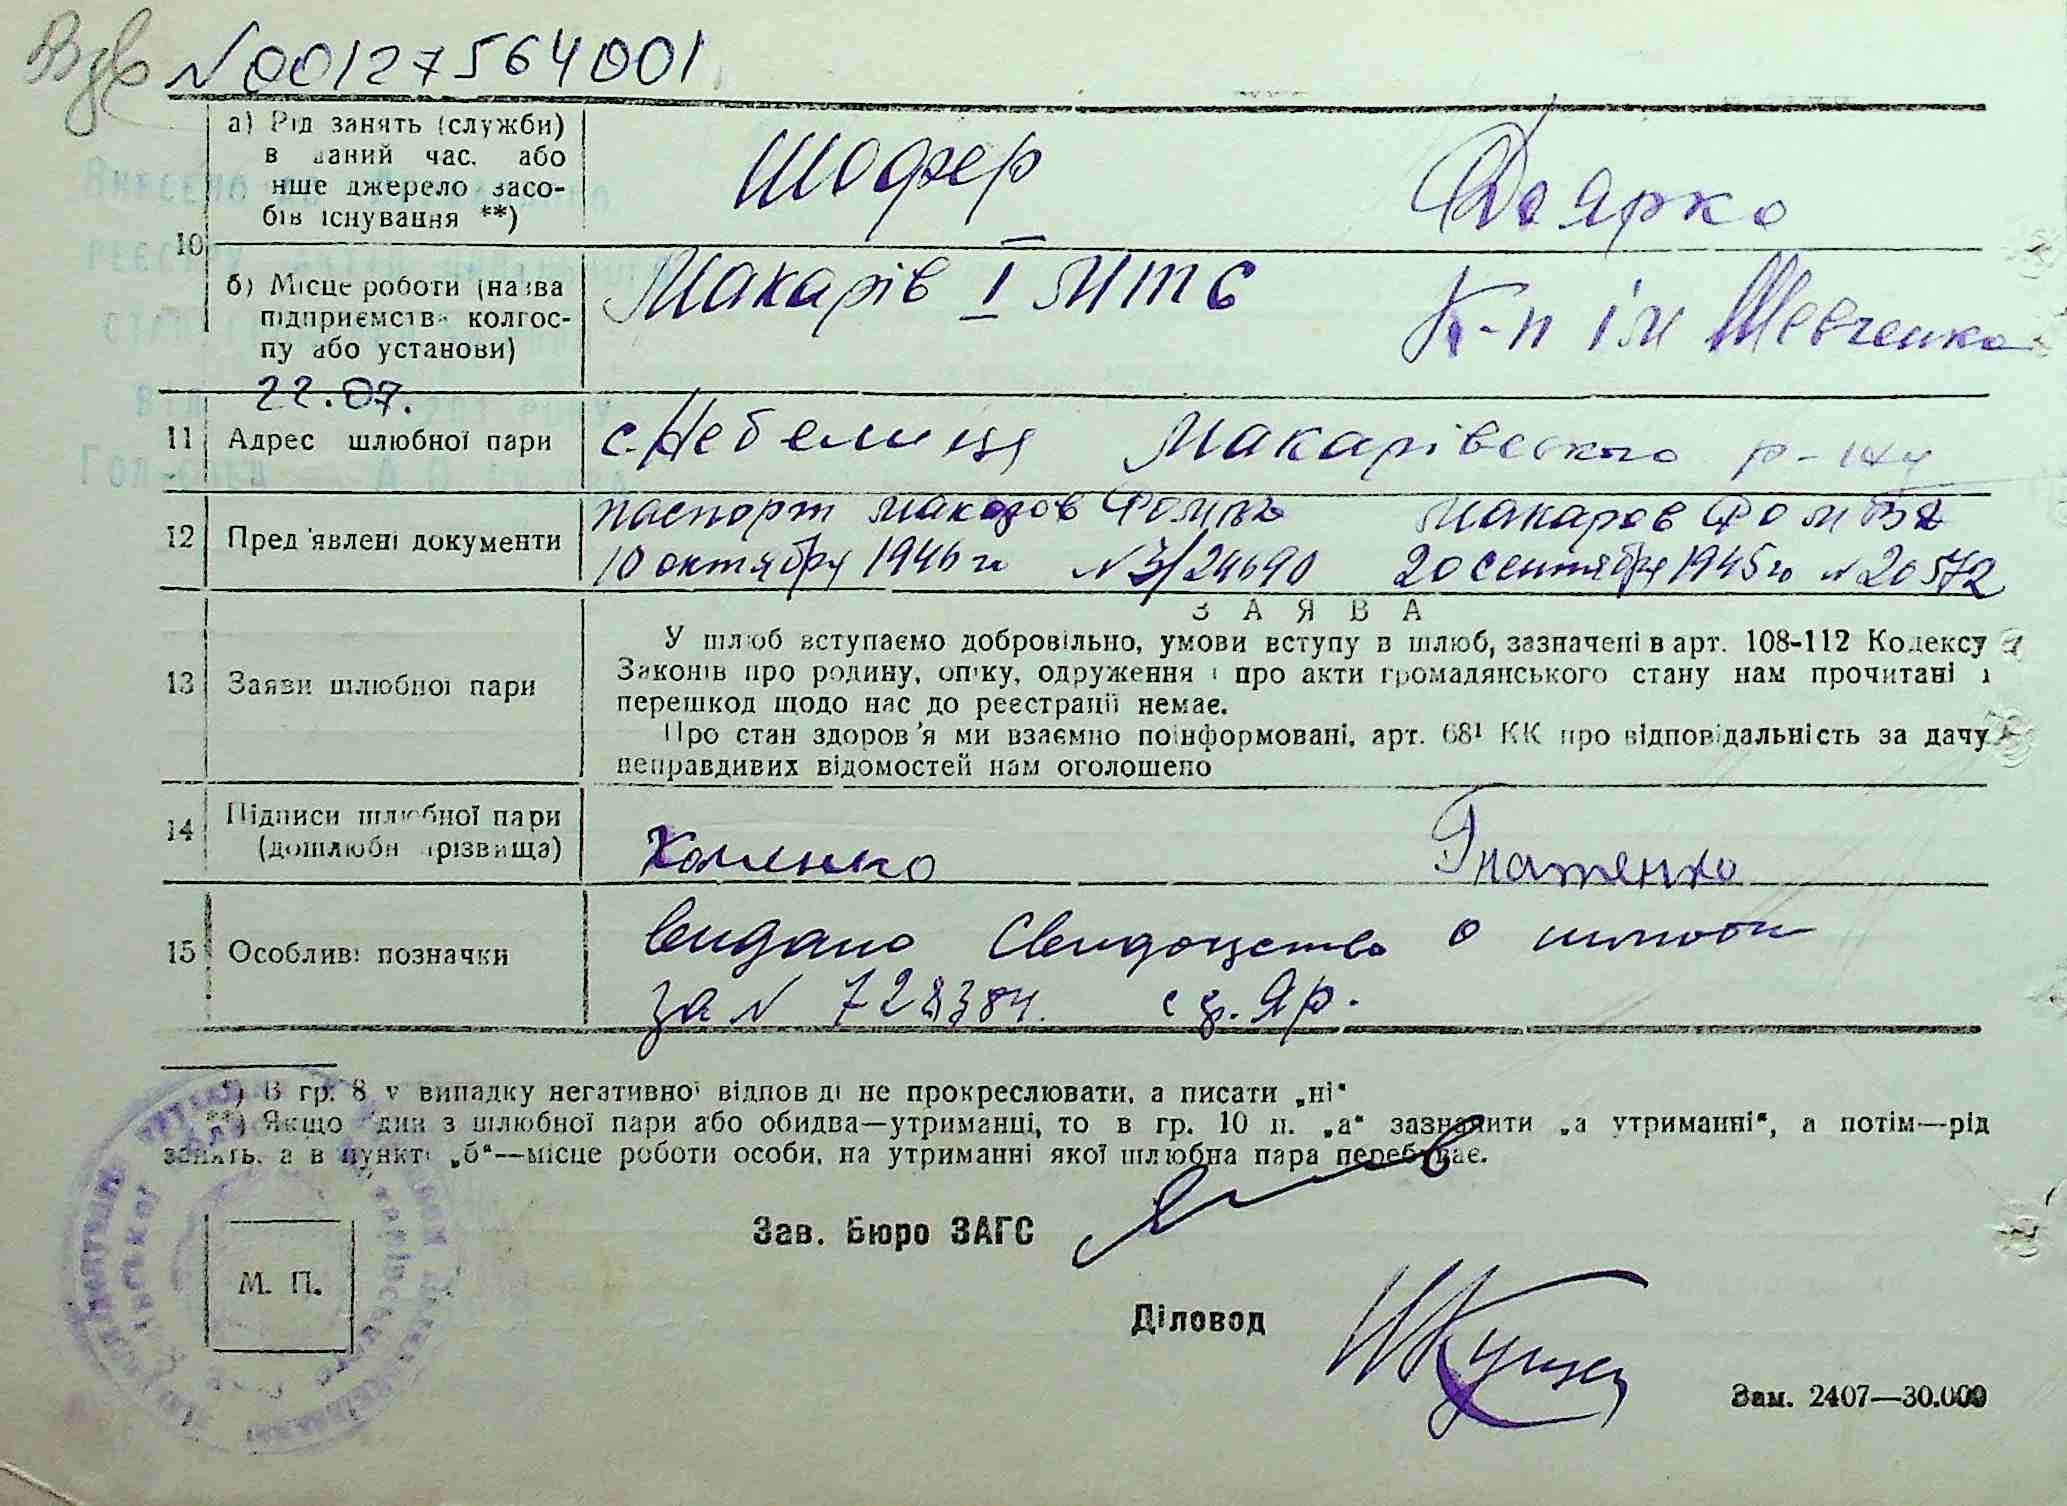 №00127564001
а) Рід занять (служби)
в даний час. або
інше джерело засо-
бів існування **)
Шофер
Доярко
10
б) Місце роботи (назва
підприємств колгос-
пу або установи)
Макарів I МТС
К-п ім Шевченко
22.07.
11
Адрес шлюбної пари
с. Небелиця Макарівского р-ну
12
Пред'явлені документи
паспорт Макаров
Макаров
10 октября 1946 г №3/24690
20 сентября 1945 г №20572
13
Заяви шлюбної пари
ЗАЯВА
У шлюб вступаємо добровільно, умови вступу в шлюб, зазначені в арт. 108-112 Кодексу
Законів про родину, опіку, одруження і про акти громадянського стану нам прочитані і
перешкод щодо нас до реєстрації немає.
Про стан здоров'я ми взаємно поінформовані, арт. 68¹ КК про відповідальність за дачу
неправдивих відомостей нам оголошено
14
Підписи шлюбної пари
(дошлюбні прізвища)
Хоменко
Гнатенко
15
Особливі позначки
видано Свидоцтво о
за № 728384.
*) В гр. 8 у випадку негативної відповіді не прокреслювати, а писати „ні"
**) Якщо один з шлюбної пари або обидва—утриманці, то в гр. 10 п. „а" зазначити „а утриманні", а потім—рід
занять, а в пункті „б"—місце роботи особи, на утриманні якої шлюбна пара перебуває.
Зав. Бюро ЗАГС
М. П.
Діловод
Зам. 2407—30.000